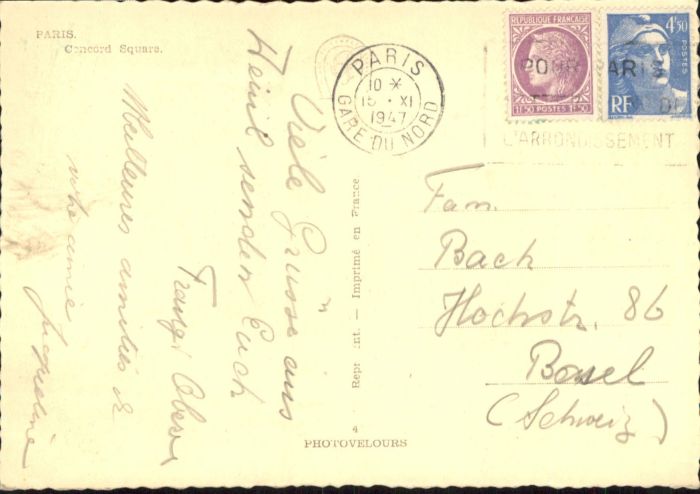 PARIS.
Concord Square.
PARIS
10 *
15 · XI
1947
GARE DU NORD
REPUBLIQUE FRANÇAISE
1F50 POSTES 1F50
4F50
POSTES
RF
POUR PARIS
DE
L'ARRONDISSEMENT
Viele Grüsse aus
senden Euch
Meilleures amitiés de
votre amie
Jacqueline
Repr ent. — Imprimé en France
4
PHOTOVELOURS
Fam.
Bach
Hochstr. 86
Basel
(Schweiz)